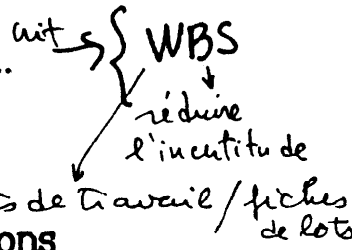 WBS
..
réduire
l'incertitude
de travail / fiches
de lots
ons